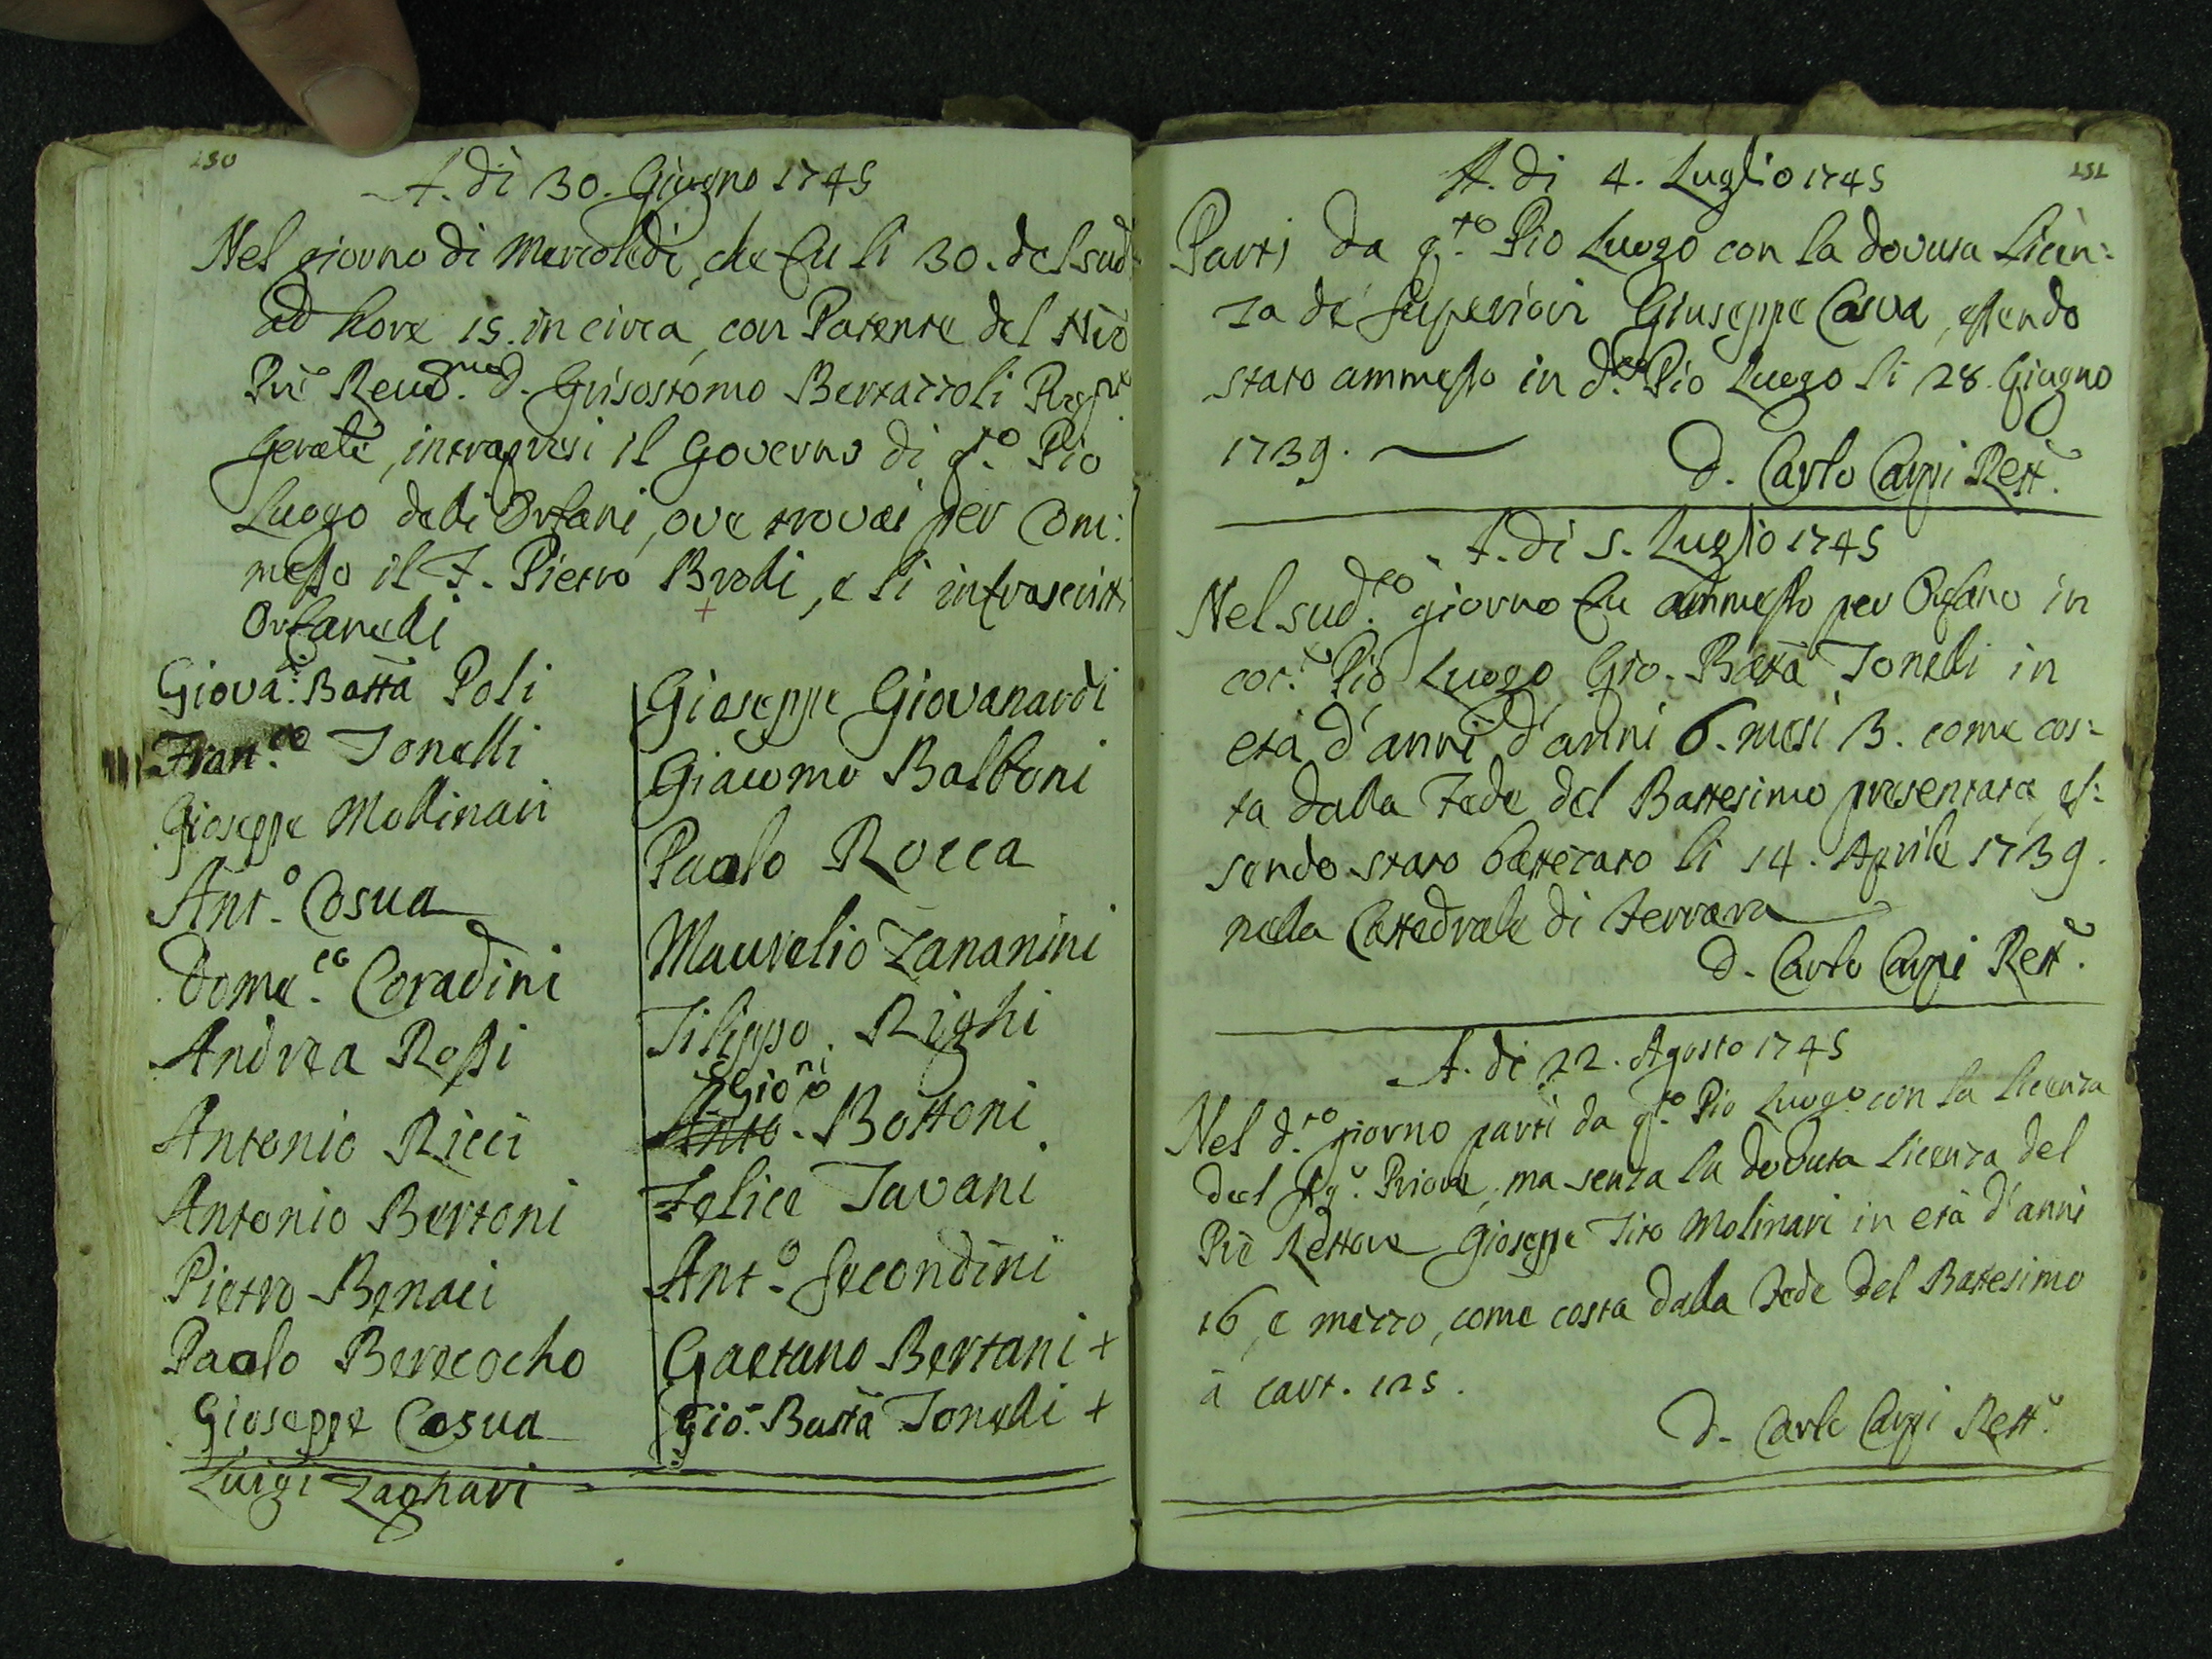 130
A. di 30. Giugno 1745
Nel giorno di Mercoledi, che fu li 30. del sud.
ad hore 15. in circa, con Patente del Nrõ
Prẽ Revd.mo D. Grisostomo Bertazzoli
Gerãle, intrapresi il Governo di q.to Pio
Luogo delli Orfani, ove trovai per Com:
messo il F. Pietro Broli, e li infrascritti
Orfanelli
Giova: Batta Poli
Fran.co Tonelli
Gioseppe Mollinari
Ant.o Cosua
Dome.co Coradini
Andrea Rossi
Antonio Ricci
Antonio Bertoni
Pietro Benaci
Paolo Berecocho
Gioseppe Cosua
Luigi Zaghari
Gioseppe Giovanardi
Giacomo Balboni
Paolo Rocca
Maurelio Zananini
Filippo Righi
Gio.ni
Anto.o Bottoni
Felice Tavani
Ant.o Secondini
Gaetano Bertani +
Gio. Batta Tonelli +
131
A. di 4. Luglio 1745
Parti da q.to Pio Luogo con la dovuta Licen:
za de Superiori Giuseppe Cosua, essendo
stato ammesso in d.to Pio Luogo li 28. Giugno
1739.
D. Carlo Carpi Rett.e
A. di 5. Luglio 1745
Nel sud.to giorno fu ammesso per Orfano in
cot.to Pio Luogo Gio. Batta Tonelli in
età d'anni d'anni 6. mesi 3. come cos:
ta dalla Fede del Battesimo presentata, es:
sendo stato battezato li 14. Aprile 1739.
nella Cattedrale di Ferrara
D. Carlo Carpi Rett.e
A. di 22. Agosto 1745
Nel d.to giorno parti da q.to Pio Luogo con la licenza
del Sig.r Priore, ma senza la dovuta licenza del
Prẽ Rettore Gioseppe Tito Molinari in età d'anni
16, e mezzo, come costa dalla Fede del Battesimo
à cart. 125.
D. Carlo Carpi Rett.e